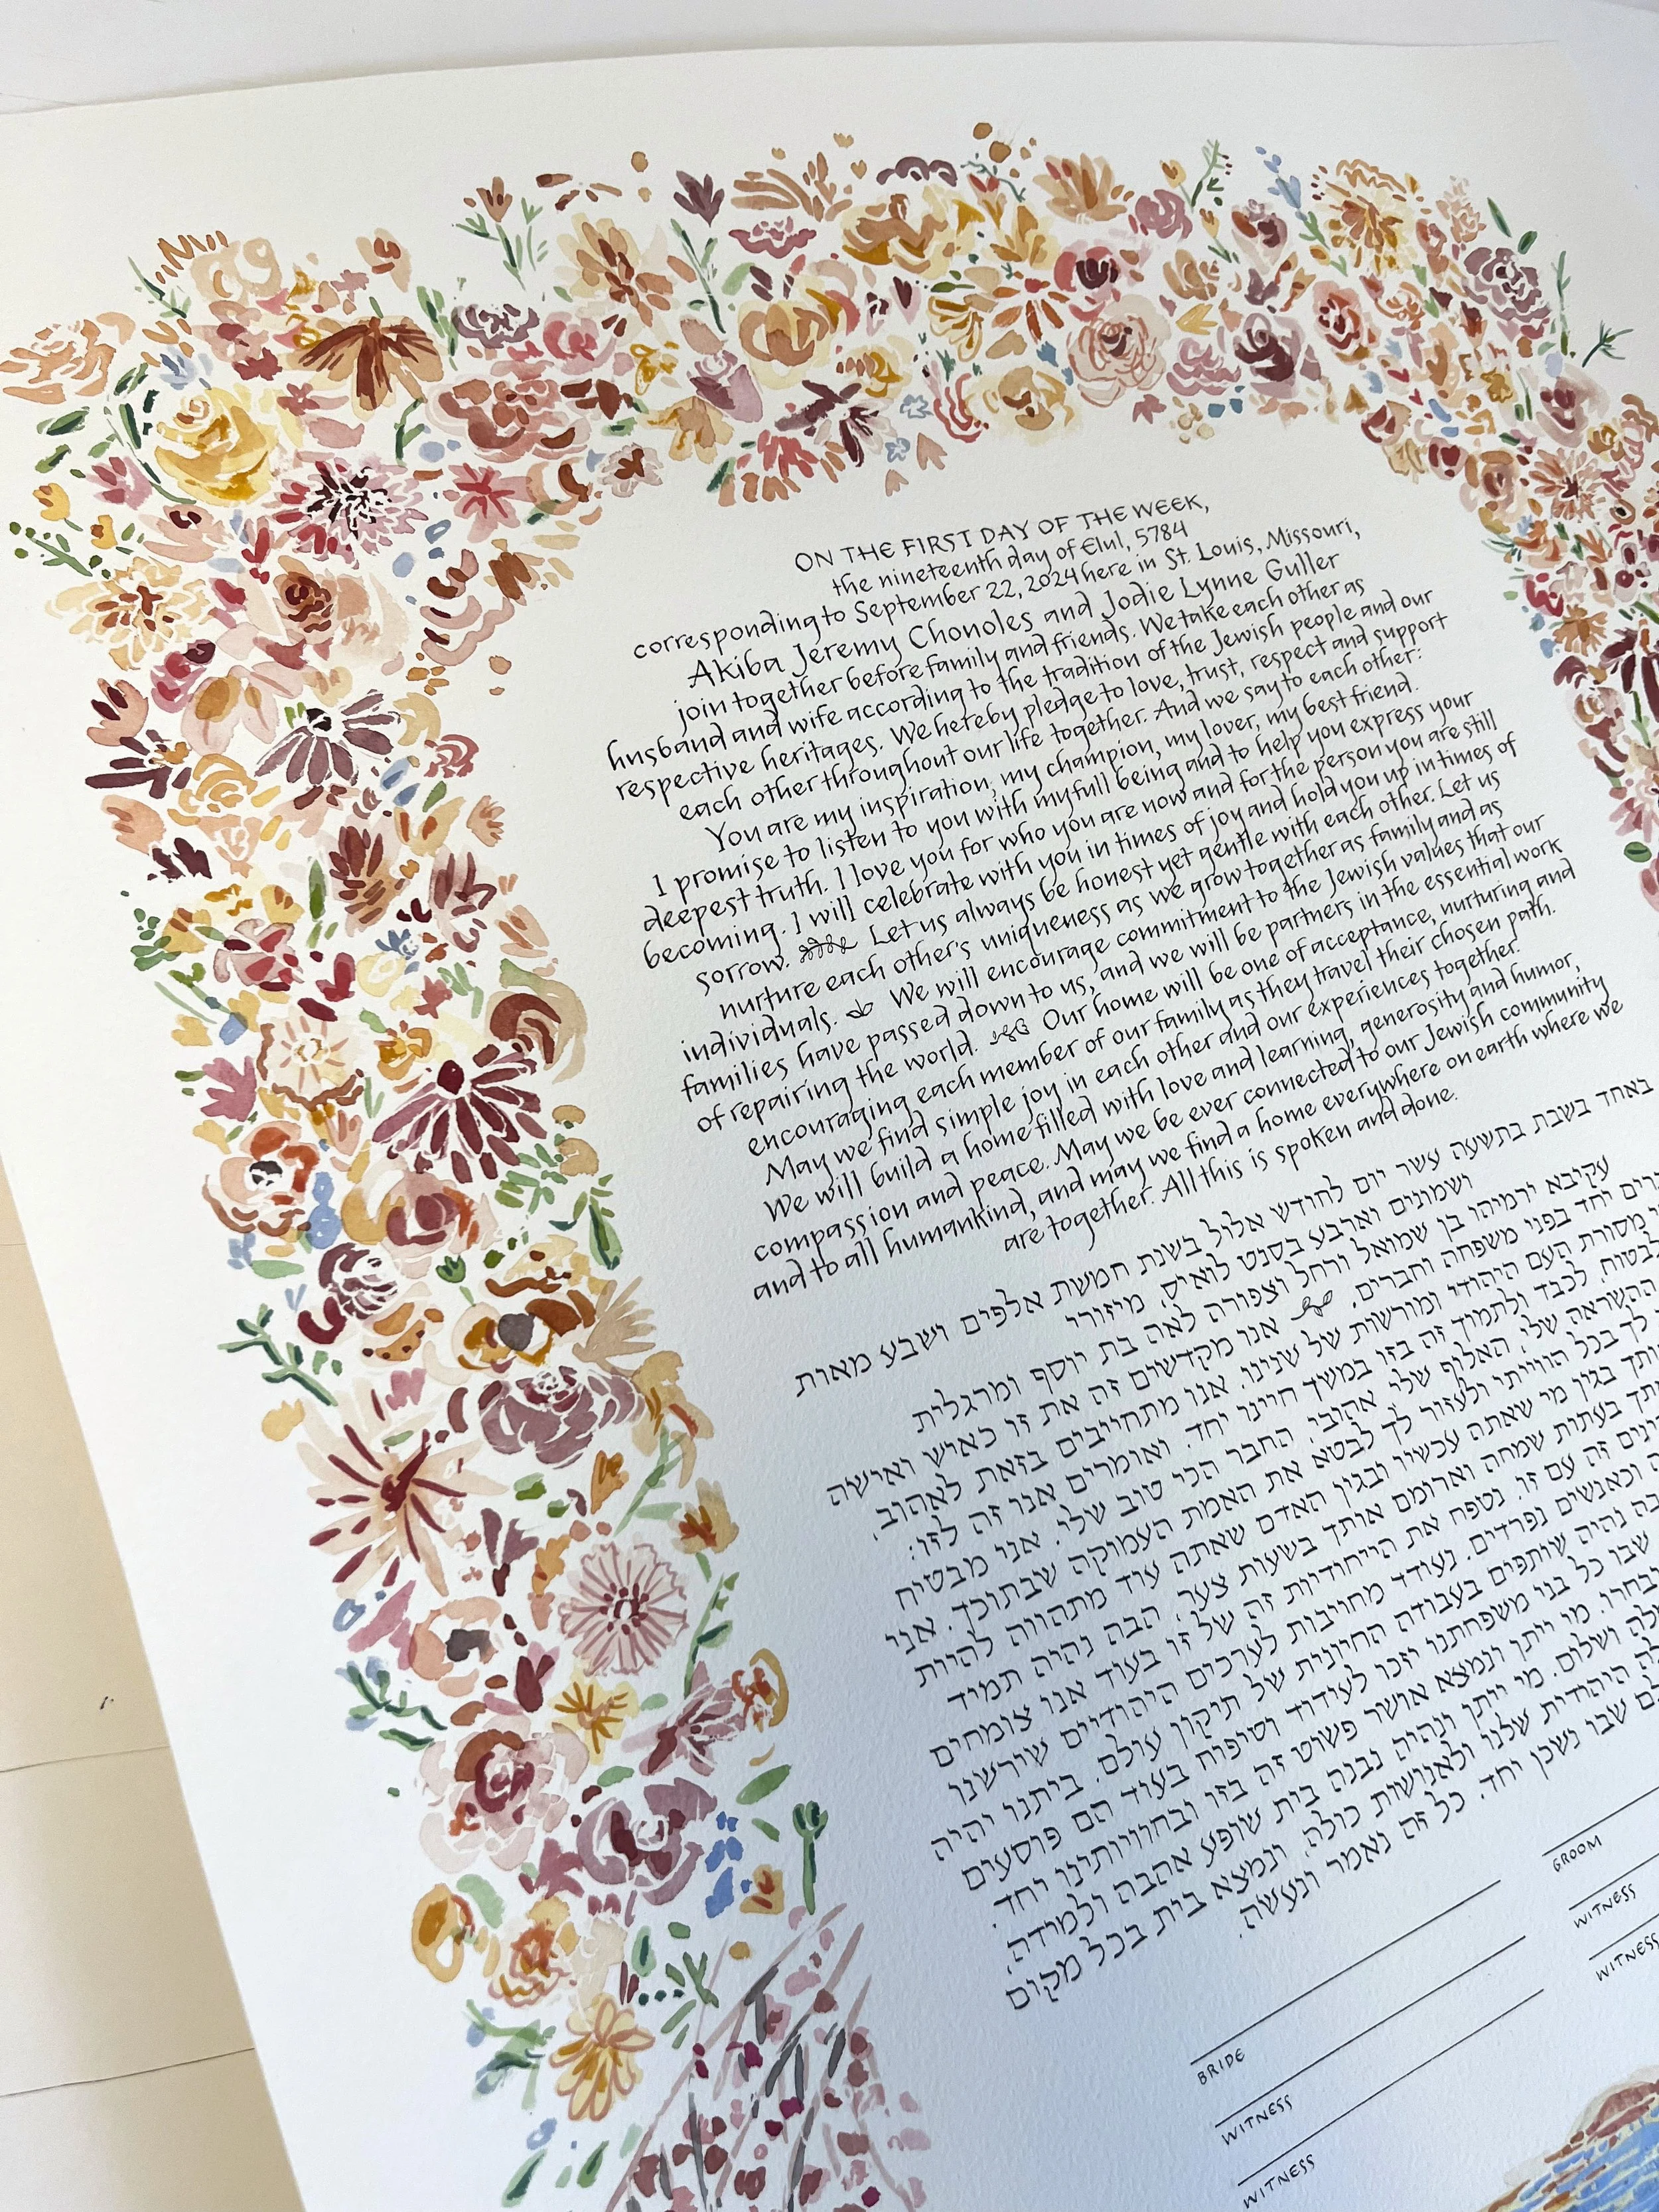 ON THE FIRST DAY OF THE WEEK,
the nineteenth day of Elul, 5784
corresponding to September 22, 2024 here in St. Louis, Missouri,
Akiba Jeremy Chonoles and Jodie Lynne Guller
join together before family and friends. We take each other as
husband and wife according to the tradition of the Jewish people and our
respective heritages. We hereby pledge to love, trust, respect and support
each other throughout our life together. And we say to each other:
You are my inspiration, my champion, my lover, my best friend.
I promise to listen to you with my full being and to help you express your
deepest truth. I love you for who you are now and for the person you are still
becoming. I will celebrate with you in times of joy and hold you up in times of
sorrow. Let us always be honest yet gentle with each other. Let us
nurture each other's uniqueness as we grow together as family and as
individuals. We will encourage commitment to the Jewish values that our
families have passed down to us, and we will be partners in the essential work
of repairing the world. Our home will be one of acceptance, nurturing and
encouraging each member of our family as they travel their chosen path.
May we find simple joy in each other and our experiences together.
We will build a home filled with love and learning, generosity and humor,
compassion and peace. May we be ever connected to our Jewish community
and to all humankind, and may we find a home everywhere on earth where we
are together. All this is spoken and done.
באחד בשבת בתשעה עשר יום לחודש אלול בשנת חמשת אלפים ושבע מאות
ושמונים וארבע בסנט לואיס, מיזורי
עקיבא ירמיהו בן שמואל ורחל וצפורה לאה בת יוסף ומרגלית
יחד בפני משפחה וחברים. אנו מקדשים זה את זו כאיש ואישה
מסורת העם היהודי ומורשות של שנינו. אנו מתחייבים בזאת לאהוב,
לבטוח, לכבד ולתמוך זה בזו במשך חיינו יחד. ואומרים אנו זה לזו:
ההשראה שלי, האלוף שלי, אהובי, החבר הכי טוב שלי. אני מבטיח
לך בכל הווייתי ולעזור לך לבטא את האמת העמוקה שבתוכך. אני
בגין מי שאתה עכשיו ובגין האדם שאתה עוד מתהווה להיות
בעתות שמחה וארומם אותך בשעות צער. הבה נהיה תמיד
זה עם זו. נטפח את הייחודיות זה של זו בעוד אנו צומחים
וכאנשים נפרדים. נעודד מחויבות לערכים היהודיים שירשנו
נהיה שותפים בעבודה החיונית של תיקון עולם. ביתנו יהיה
שבו כל בני משפחתנו יזכו לעידוד וטיפוח בעוד הם פוסעים
מי ייתן ונמצא אושר פשוט זה בזו ובחוויותינו יחד.
נבנה בית שופע אהבה ולמידה,
ושלום. מי ייתן ונהיה
היהודית שלנו ולאנושות כולה, ונמצא בית בכל מקום
שבו נשכן יחד. כל זה נאמר ונעשה.
BRIDE
GROOM
WITNESS
WITNESS
WITNESS
WITNESS